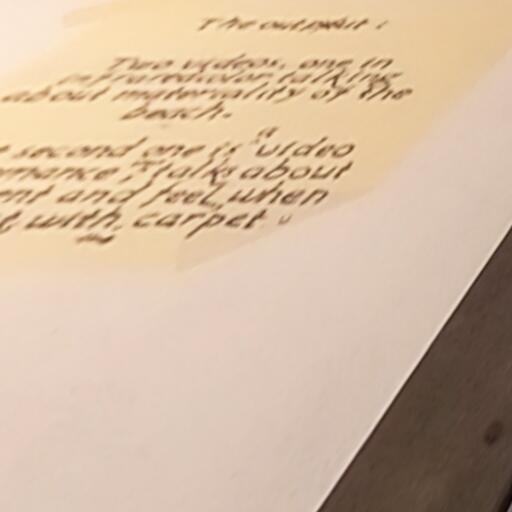 The output:
Two videos, one in
infraredcolor talking
about materiality of the
beach.
second one is "video
talks about
and feel, when
with carpet "